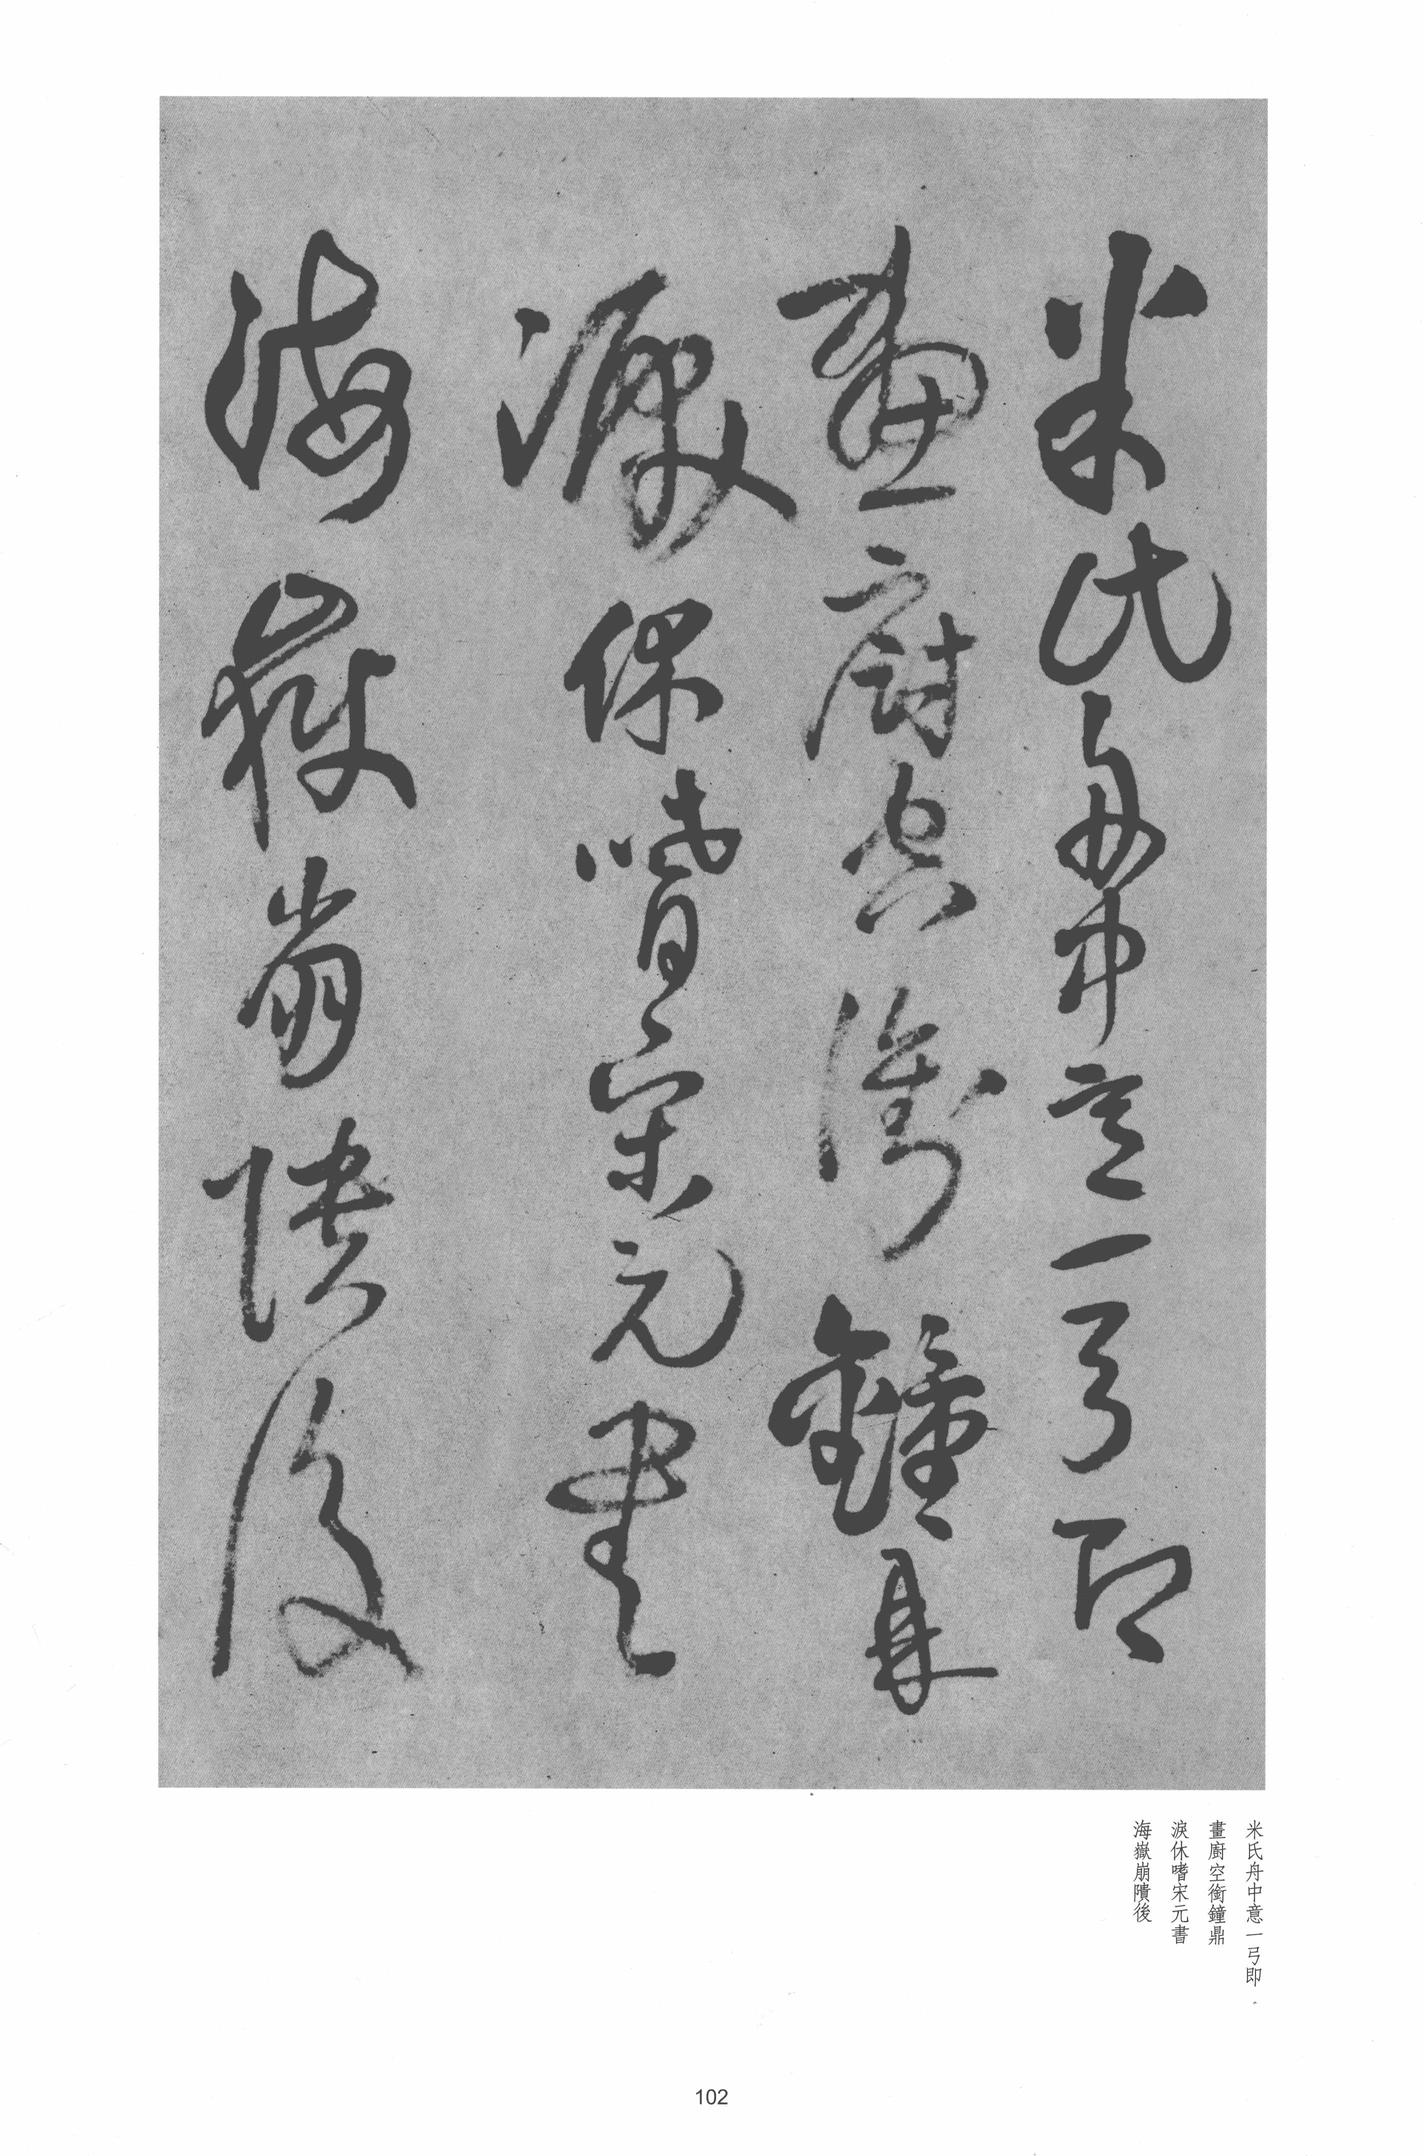 米氏舟中意一弓即
畫廚空銜鐘鼎
淚休嗜宋元書
海嶽崩隤後
米氏舟中意一弓即
畫廚空銜鐘鼎
淚休嗜宋元書
海嶽崩隤後
102